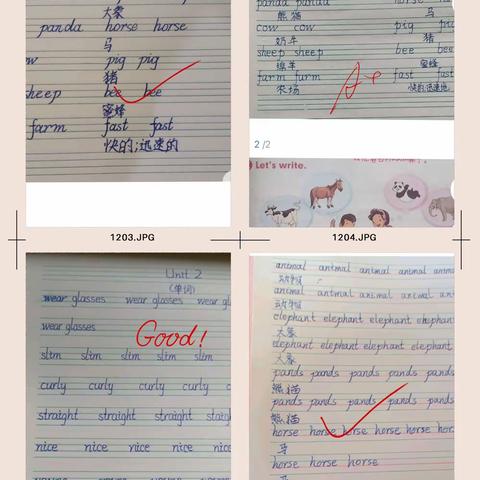 大象
panda horse horse
马
pig pig
猪
sheep bee bee
蜜蜂
farm fast fast
快的;迅速的
panda panda horse
熊猫 马
cow cow pig pig
奶牛 猪
sheep sheep bee bee
绵羊 蜜蜂
farm farm fast fast
农场 快的;迅速地
A+
2 /2
Let's write.
1203.JPG
1204.JPG
Unit 2
(单词)
wear glasses wear glasses wear gl
wear glasses
Good!
slim slim slim slim slim
curly curly curly curly
straight straight straight
nice nice nice nice nice
animal animal animal animal anim
动物
animal animal animal animal
动物
elephant elephant elephant elephant
大象
elephant elephant elephant elephant
大象
pands pands pands pands pands
熊猫
pands pands pands pands pands
熊猫
horse horse horse horse horse hor
马
horse horse horse
马